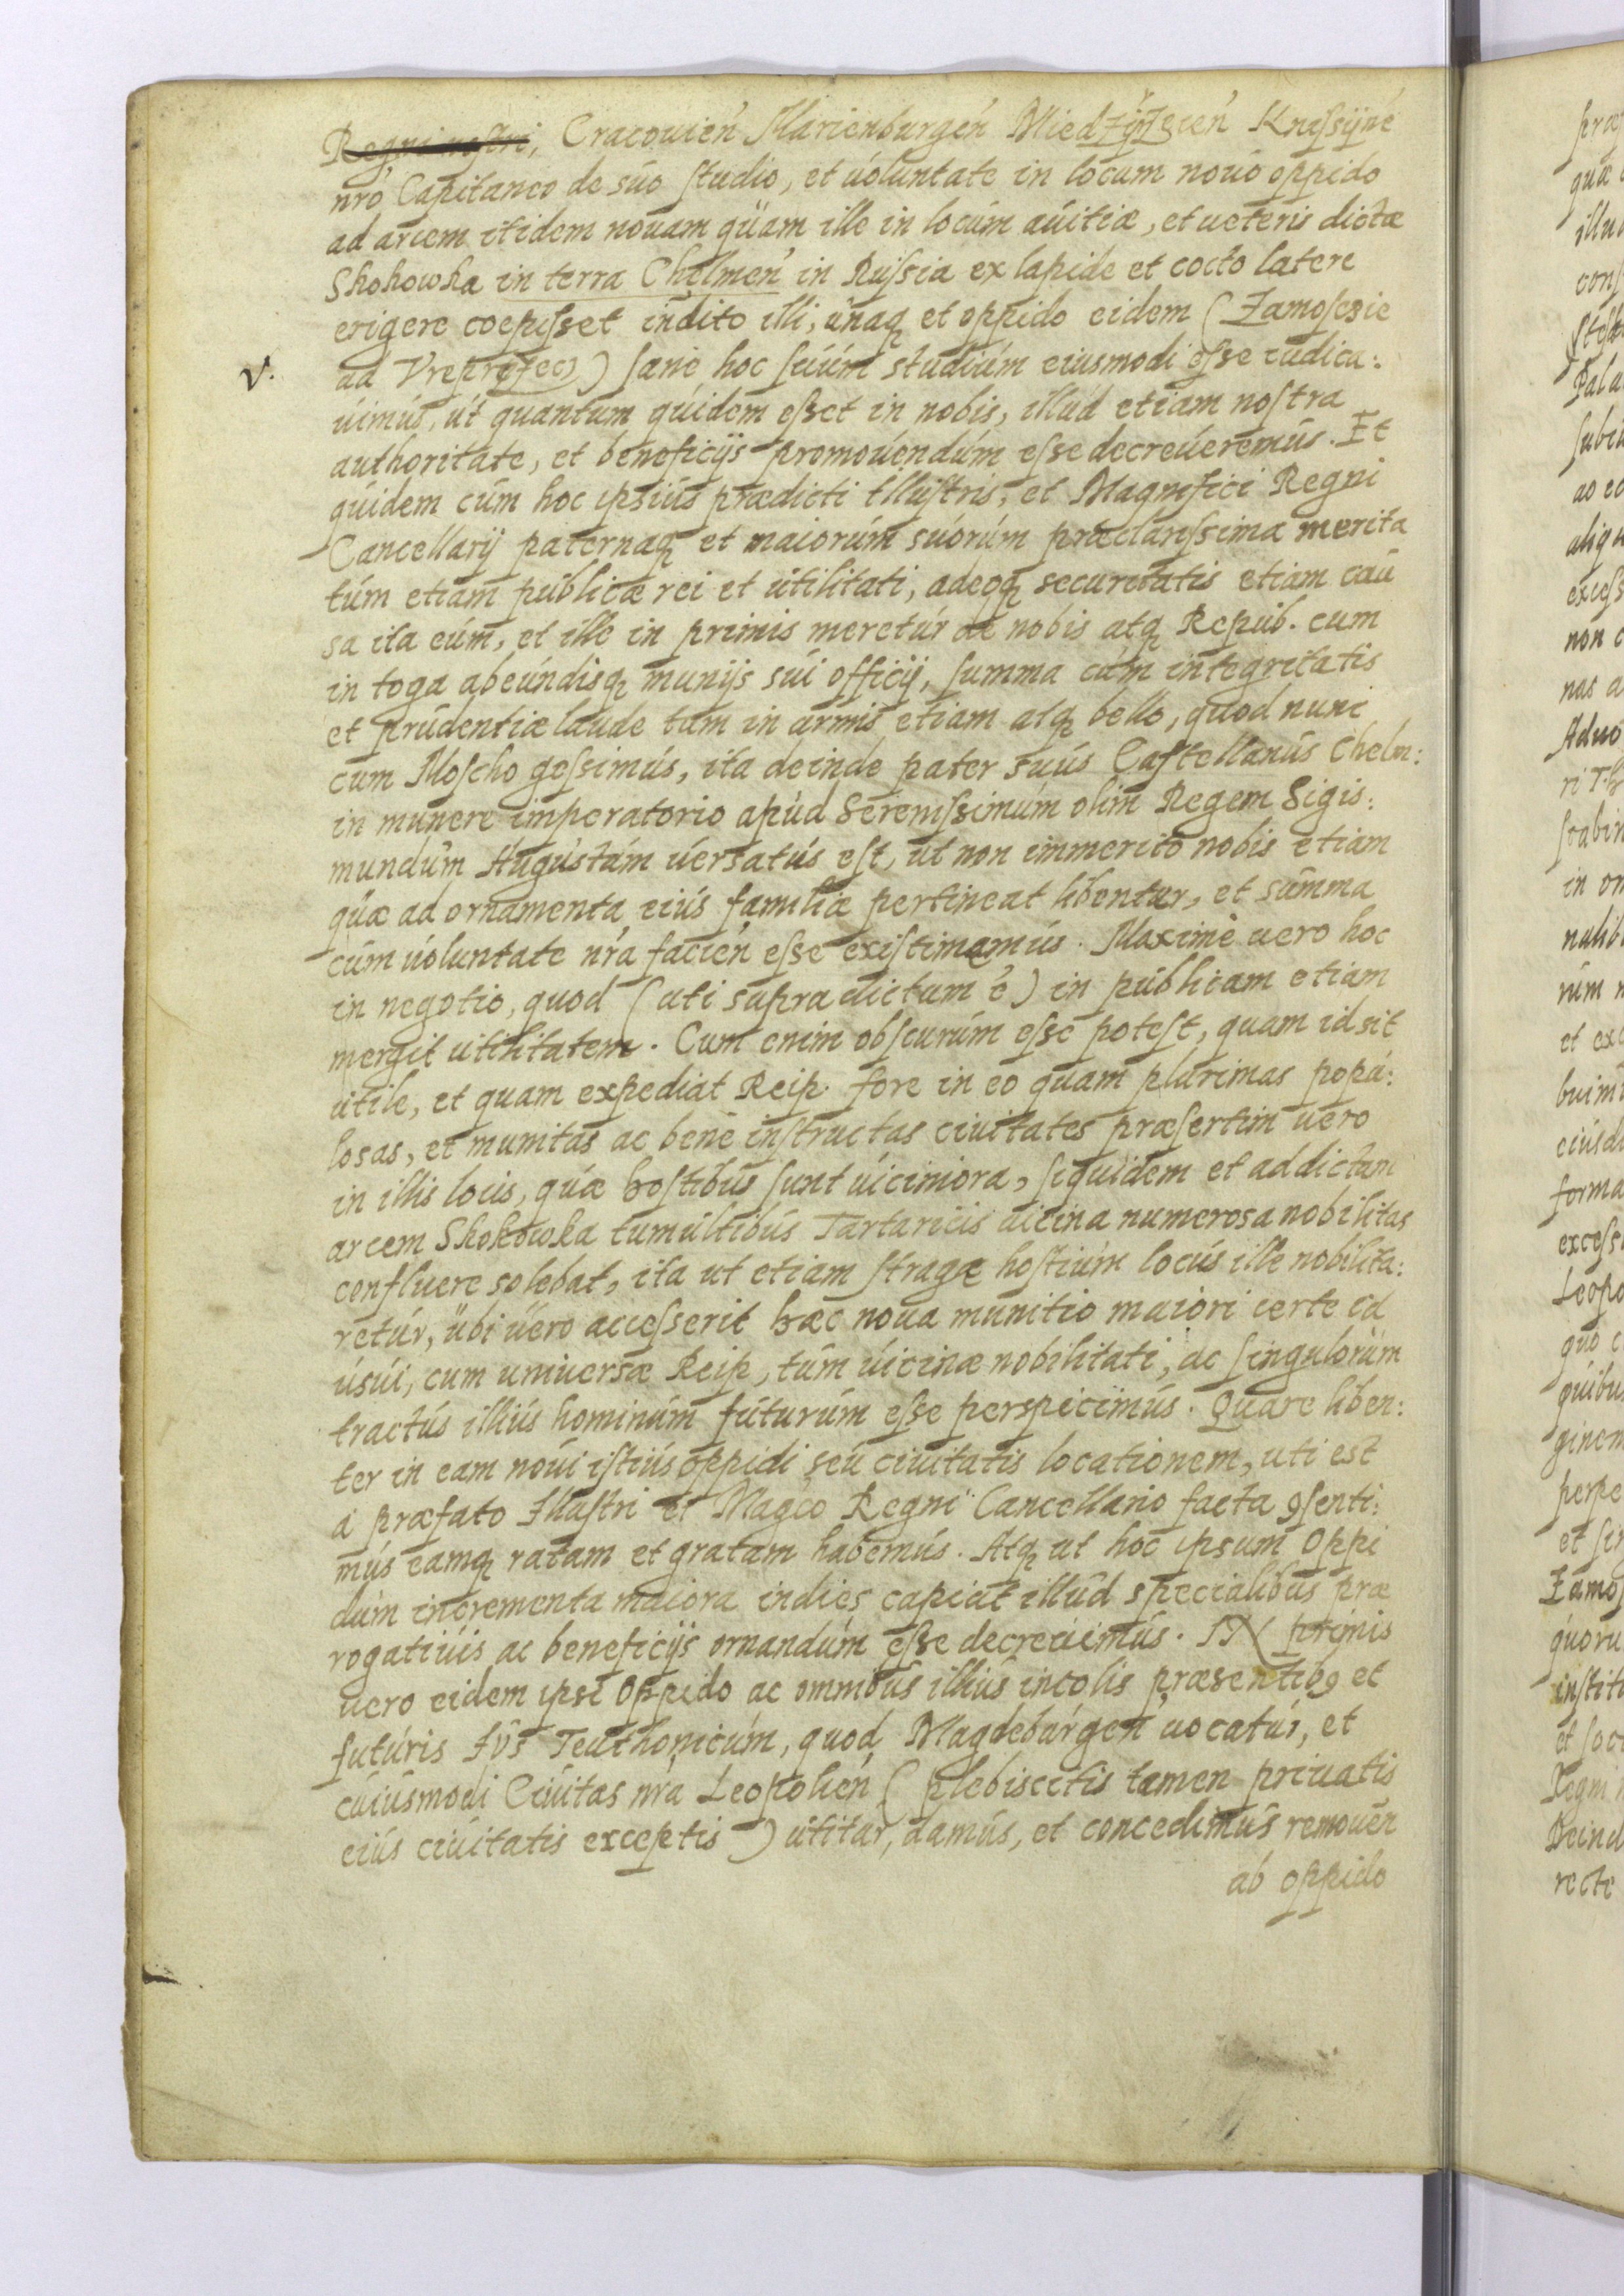 Regni nostri, Cracouien̄ Marienburgen̄ Miedzÿrzecen̄ Knessijnē
nrō Capitaneo de súo studio, et úoluntate in locum nouo oppido
ad arcem itidem nouam qùam ille in locúm aúitiæ, et ueteris dictæ
Skokowka in terra Chelmen̄ in Russia ex lapide et cocto latere
erigere coepisset indito illi, únaq̨ et oppido eidem (Zamoscie
v. ad ) sane hoc súúm studiúm eiusmodi esse iudica:
uimús, út quantum qúidem esset in nobis, illúd etiam nostra
authoritate, et beneficijs promouéndúm esse decreúeremús. Et
qúidem cúm hoc ipsiús prædicti Illustris, et Magnifici Regni
Cancellarij paternaq̨ et maiorúm súorúm præclarissima merita
túm etiam públicæ rei et útilitati, adeoq̨ securitatis etiam caú
sa ita eúm, et ille in primis meretúr de nobis atq̨ Repub. cum
in toga abeúndisq̨ munijs súi officij, summa cúm integritatis
et prúdentiæ laude tum in armis etiam atq̨ bello, quod nunc
cum Moscho gessimús, ita deinde pater suús Castellanús Chelm:
in munere imperatorio apúd Serenissimúm olim Regem Sigis:
mundúm Augústúm úersatús est, út non immerito nobis etiam
qúæ ad ornamenta eiús familiæ pertineat libentur, et súmma
cúm uoluntate nr̄a facien̄ esse existimamús. Maximè uero hoc
in negotio, quod (uti supra dictum ē) in públicam etiam
mergit utilitatem. Cum enim obscurúm esse potest, quam id sit
útile, et quam expediat Reip. fore in eo quam plúrimas popú:
losas, et munitas ac bene instructas ciuitates præsertim uero
in illis locis, qúæ hostibus sunt uiciniora, siquidem et ad dictam
arcem Skokowka tumúltibús Tartaricis uicina numerosa nobilitas
confluere solebat, ita ut etiam stragæ hostiúm locús ille nobilita:
retúr, úbi úero accesserit hæc noua munitio maiori certe id
úsúi, cum uniuersæ Reip, túm úicinæ nobilitati, ac singulorúm
tractús illiús hominúm fúturúm esse perspicimús. Quare liben:
ter in eam nouí istiús oppidi seú ciuitatis locationem, uti est
á præfato Illustri et Magc̄o Regni Cancellario facta ꝯsenti:
mús eamq̨ ratam et gratam habemús. Atq̨ ut hoc ipsum Oppi
dúm incrementa maiora indies capiat illúd specialibus præ
rogatiúis ac beneficijs ornandúm esse decreúimús. IN primis
uero eidem ipsi Oppido ac omnibus illius incolis præsentibꝰ et
futúris Iús Teuthonicúm, quod Magdebúrgen̄ uocatúr, et
cúiúsmodi Ciúitas nr̄a Leopolien̄ (plebiscitis tamen priuatis
eiús ciúitatis exceptis) utitur, damús, et concedimús remouen̄
ab oppido